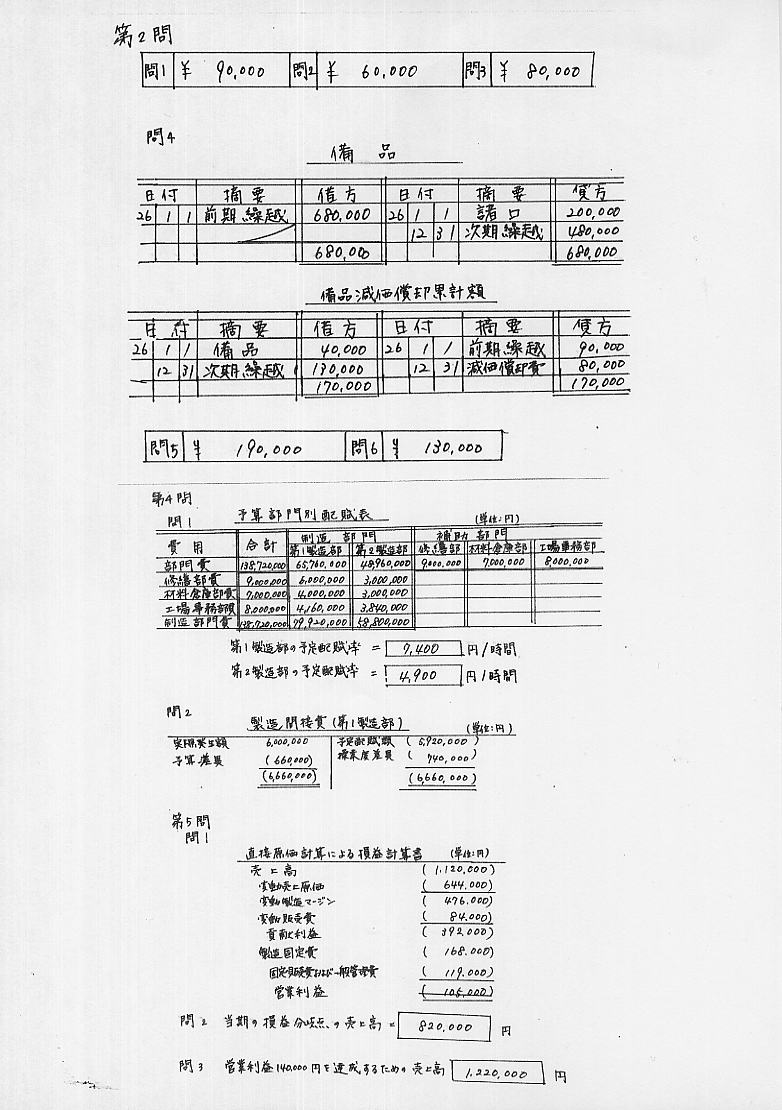 第2問
問1 ¥ 90,000 問2 ¥ 60,000 問3 ¥ 80,000
問4
備品
日付 摘要 借方 日付 摘要 貸方
26 1 1 前期繰越 680,000 26 1 1 諸口 200,000
12 31 次期繰越 480,000
680,000 680,000
備品減価償却累計額
日付 摘要 借方 日付 摘要 貸方
26 1 1 備品 40,000 26 1 1 前期繰越 90,000
12 31 次期繰越 130,000 12 31 減価償却費 80,000
170,000 170,000
問5 ¥ 190,000 問6 ¥ 130,000
第4問
問1 予算部門別配賦表 (単位:円)
費用 合計 製造部門 補助部門
第1製造部 第2製造部 修繕部 材料倉庫部 工場事務部
部門費 138,720,000 65,760,000 48,960,000 9,000,000 7,000,000 8,000,000
修繕部費 9,000,000 6,000,000 3,000,000
材料倉庫部費 7,000,000 4,000,000 3,000,000
工場事務部費 8,000,000 4,160,000 3,840,000
製造部門費 138,720,000 79,920,000 58,800,000
第1製造部の予定配賦率 = 7,400 円/時間
第2製造部の予定配賦率 = 4,900 円/時間
問2
製造間接費(第1製造部) (単位:円)
実際発生額 6,000,000 予定配賦額 (5,920,000)
予算差異 (660,000) 操業度差異 (740,000)
(6,660,000) (6,660,000)
第5問
問1
直接原価計算による損益計算書 (単位:円)
売上高 (1,120,000)
変動売上原価 (644,000)
変動製造マージン (476,000)
変動販売費 (84,000)
貢献利益 (392,000)
製造固定費 (168,000)
固定販売費および一般管理費 (119,000)
営業利益 (105,000)
問2 当期の損益分岐点の売上高 = 820,000 円
問3 営業利益140,000円を達成するための売上高 1,220,000 円